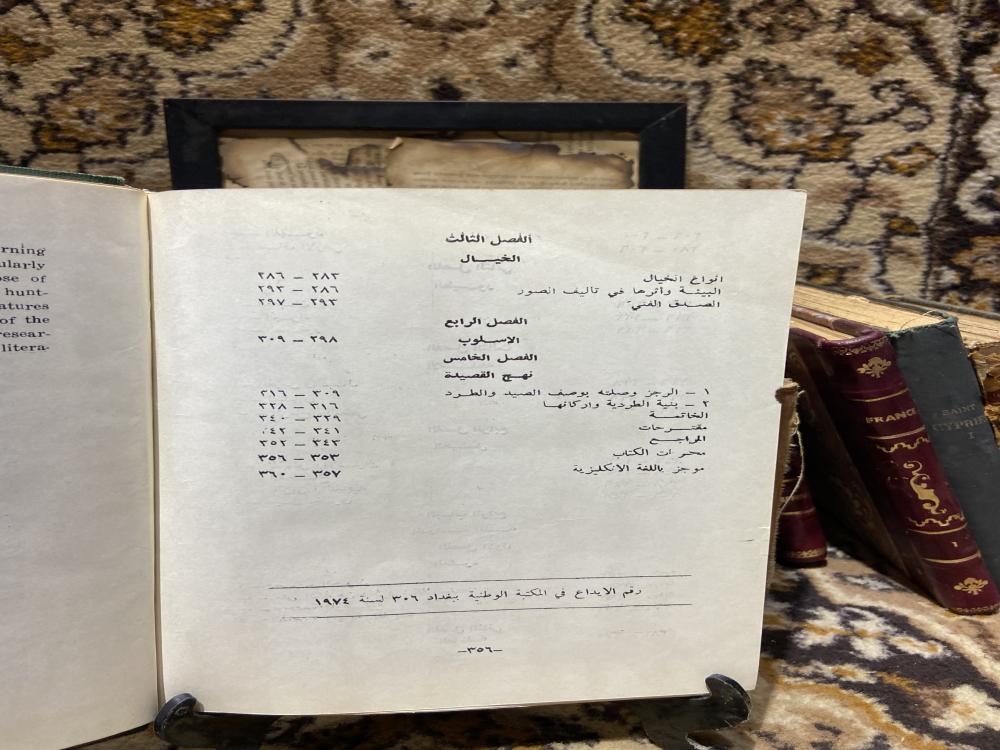 الفصل الثالث
الخيـــال
انواع الخيال ٢٨٣ — ٢٨٦
البيئـة وأثرها في تأليف الصور ٢٨٦ — ٢٩٣
الصـدق الفني ٢٩٣ — ٢٩٧
الفصل الرابع
الاسـلوب ٢٩٨ — ٣٠٩
الفصل الخامس
نهـج القصيدة
١ — الرجز وصلته بوصف الصيد والطـرد ٣٠٩ — ٢١٦
٢ — بنية الطردية واركانهـا ٣١٦ — ٣٢٨
الخاتمـــة ٣٢٩ — ٣٤٠
مقتـرحات ٣٤١ — ٤٢
المراجـع ٣٤٣ — ٣٥٢
الكتاب ٣٥٣ — ٣٥٦
موجز باللغة الانكليزية ٣٥٧ — ٣٦٠
رقم الايداع في المكتبة الوطنية ببغداد ٣٠٦ لسنة ١٩٧٤
—٣٥٦—
rning
ularly
ose of
hunt-
atures
of the
resear-
litera-
FRANCE
I
SAINT
CYPRIEN
I